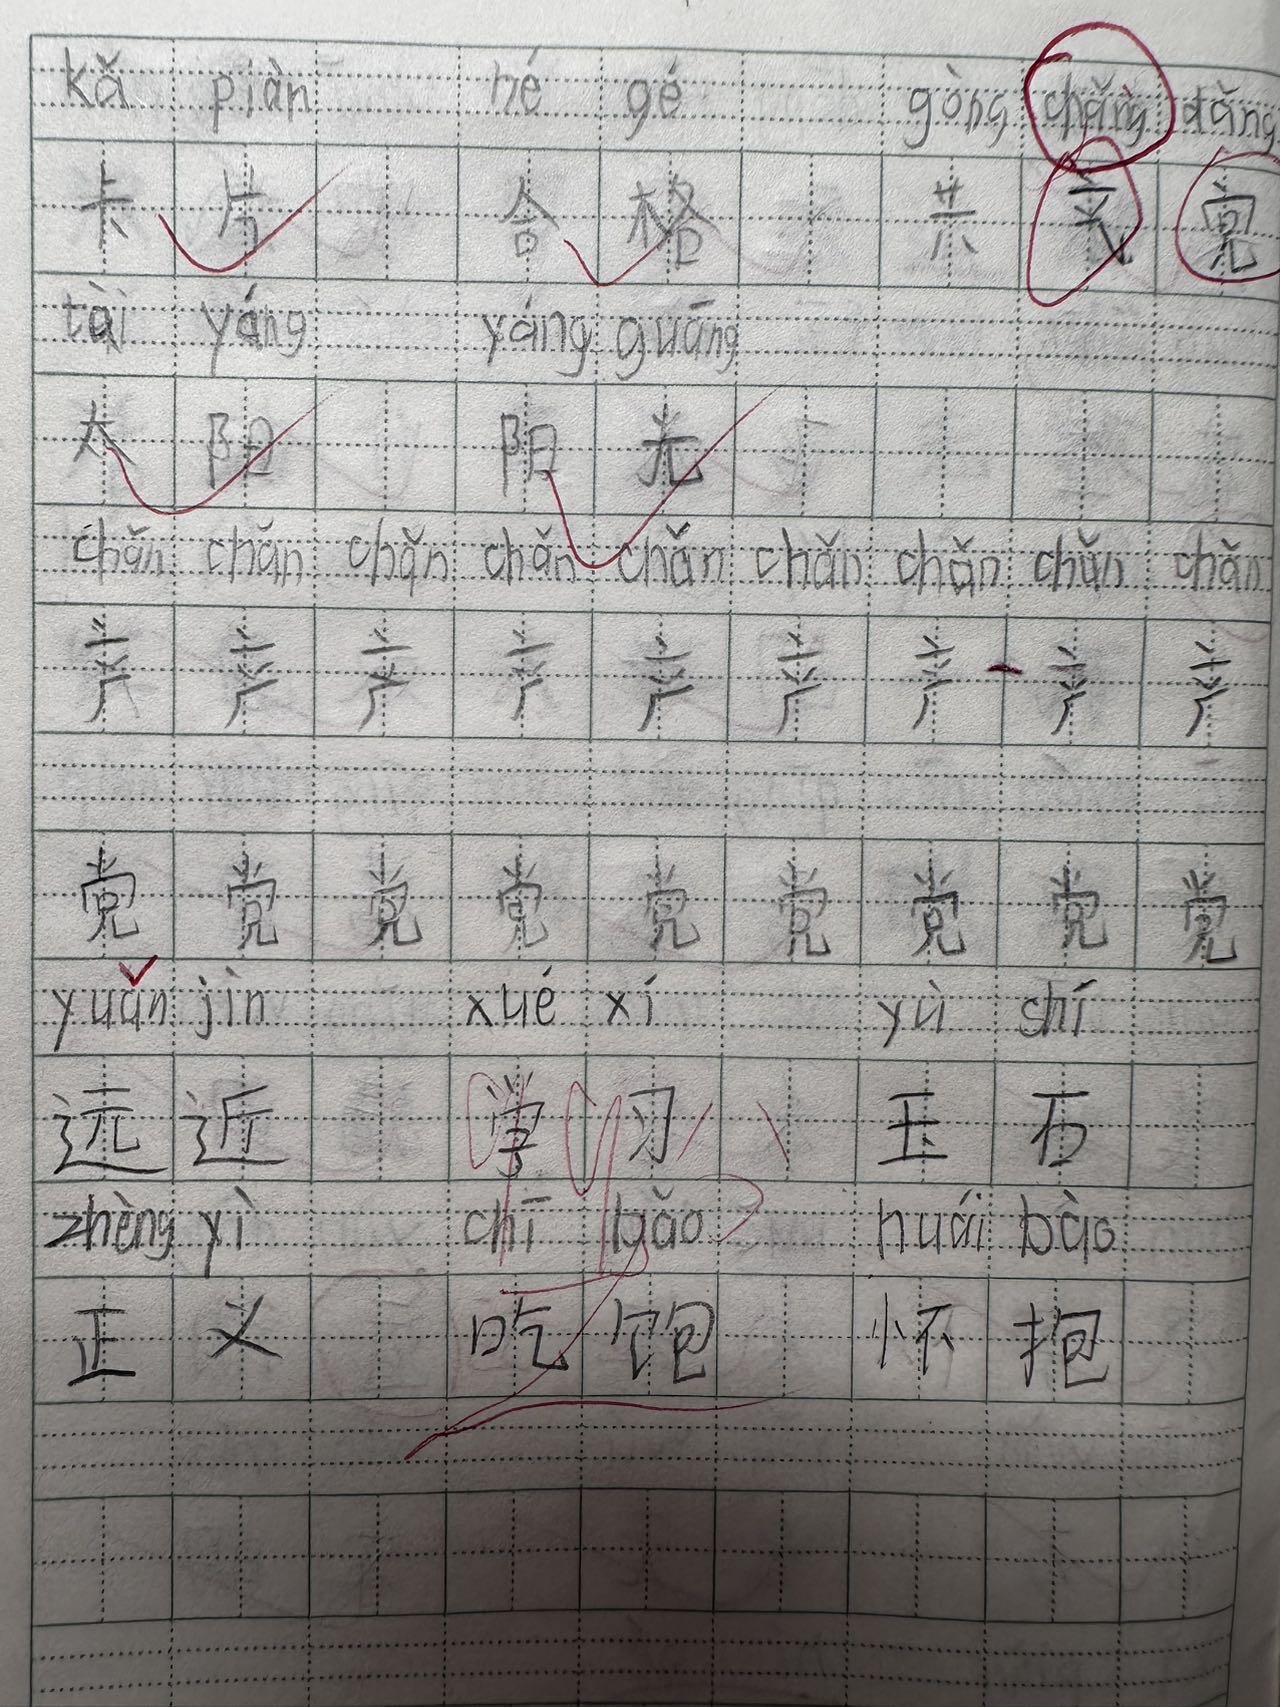 kǎ piàn hé gé gòng chǎng dǎng
卡片 合格 共 党
tài yáng yáng guāng
太阳 阳光
chǎn chǎn chǎn chǎn chǎn chǎn chǎn chǎn chǎn
产 产 产 产 产 产 产 产 产
党 党 党 党 党 党 党 党 党
yuǎn jìn xué xí yù shí
远近 学习 王石
zhèng yì chī bǎo huái bào
正义 吃饱 怀抱